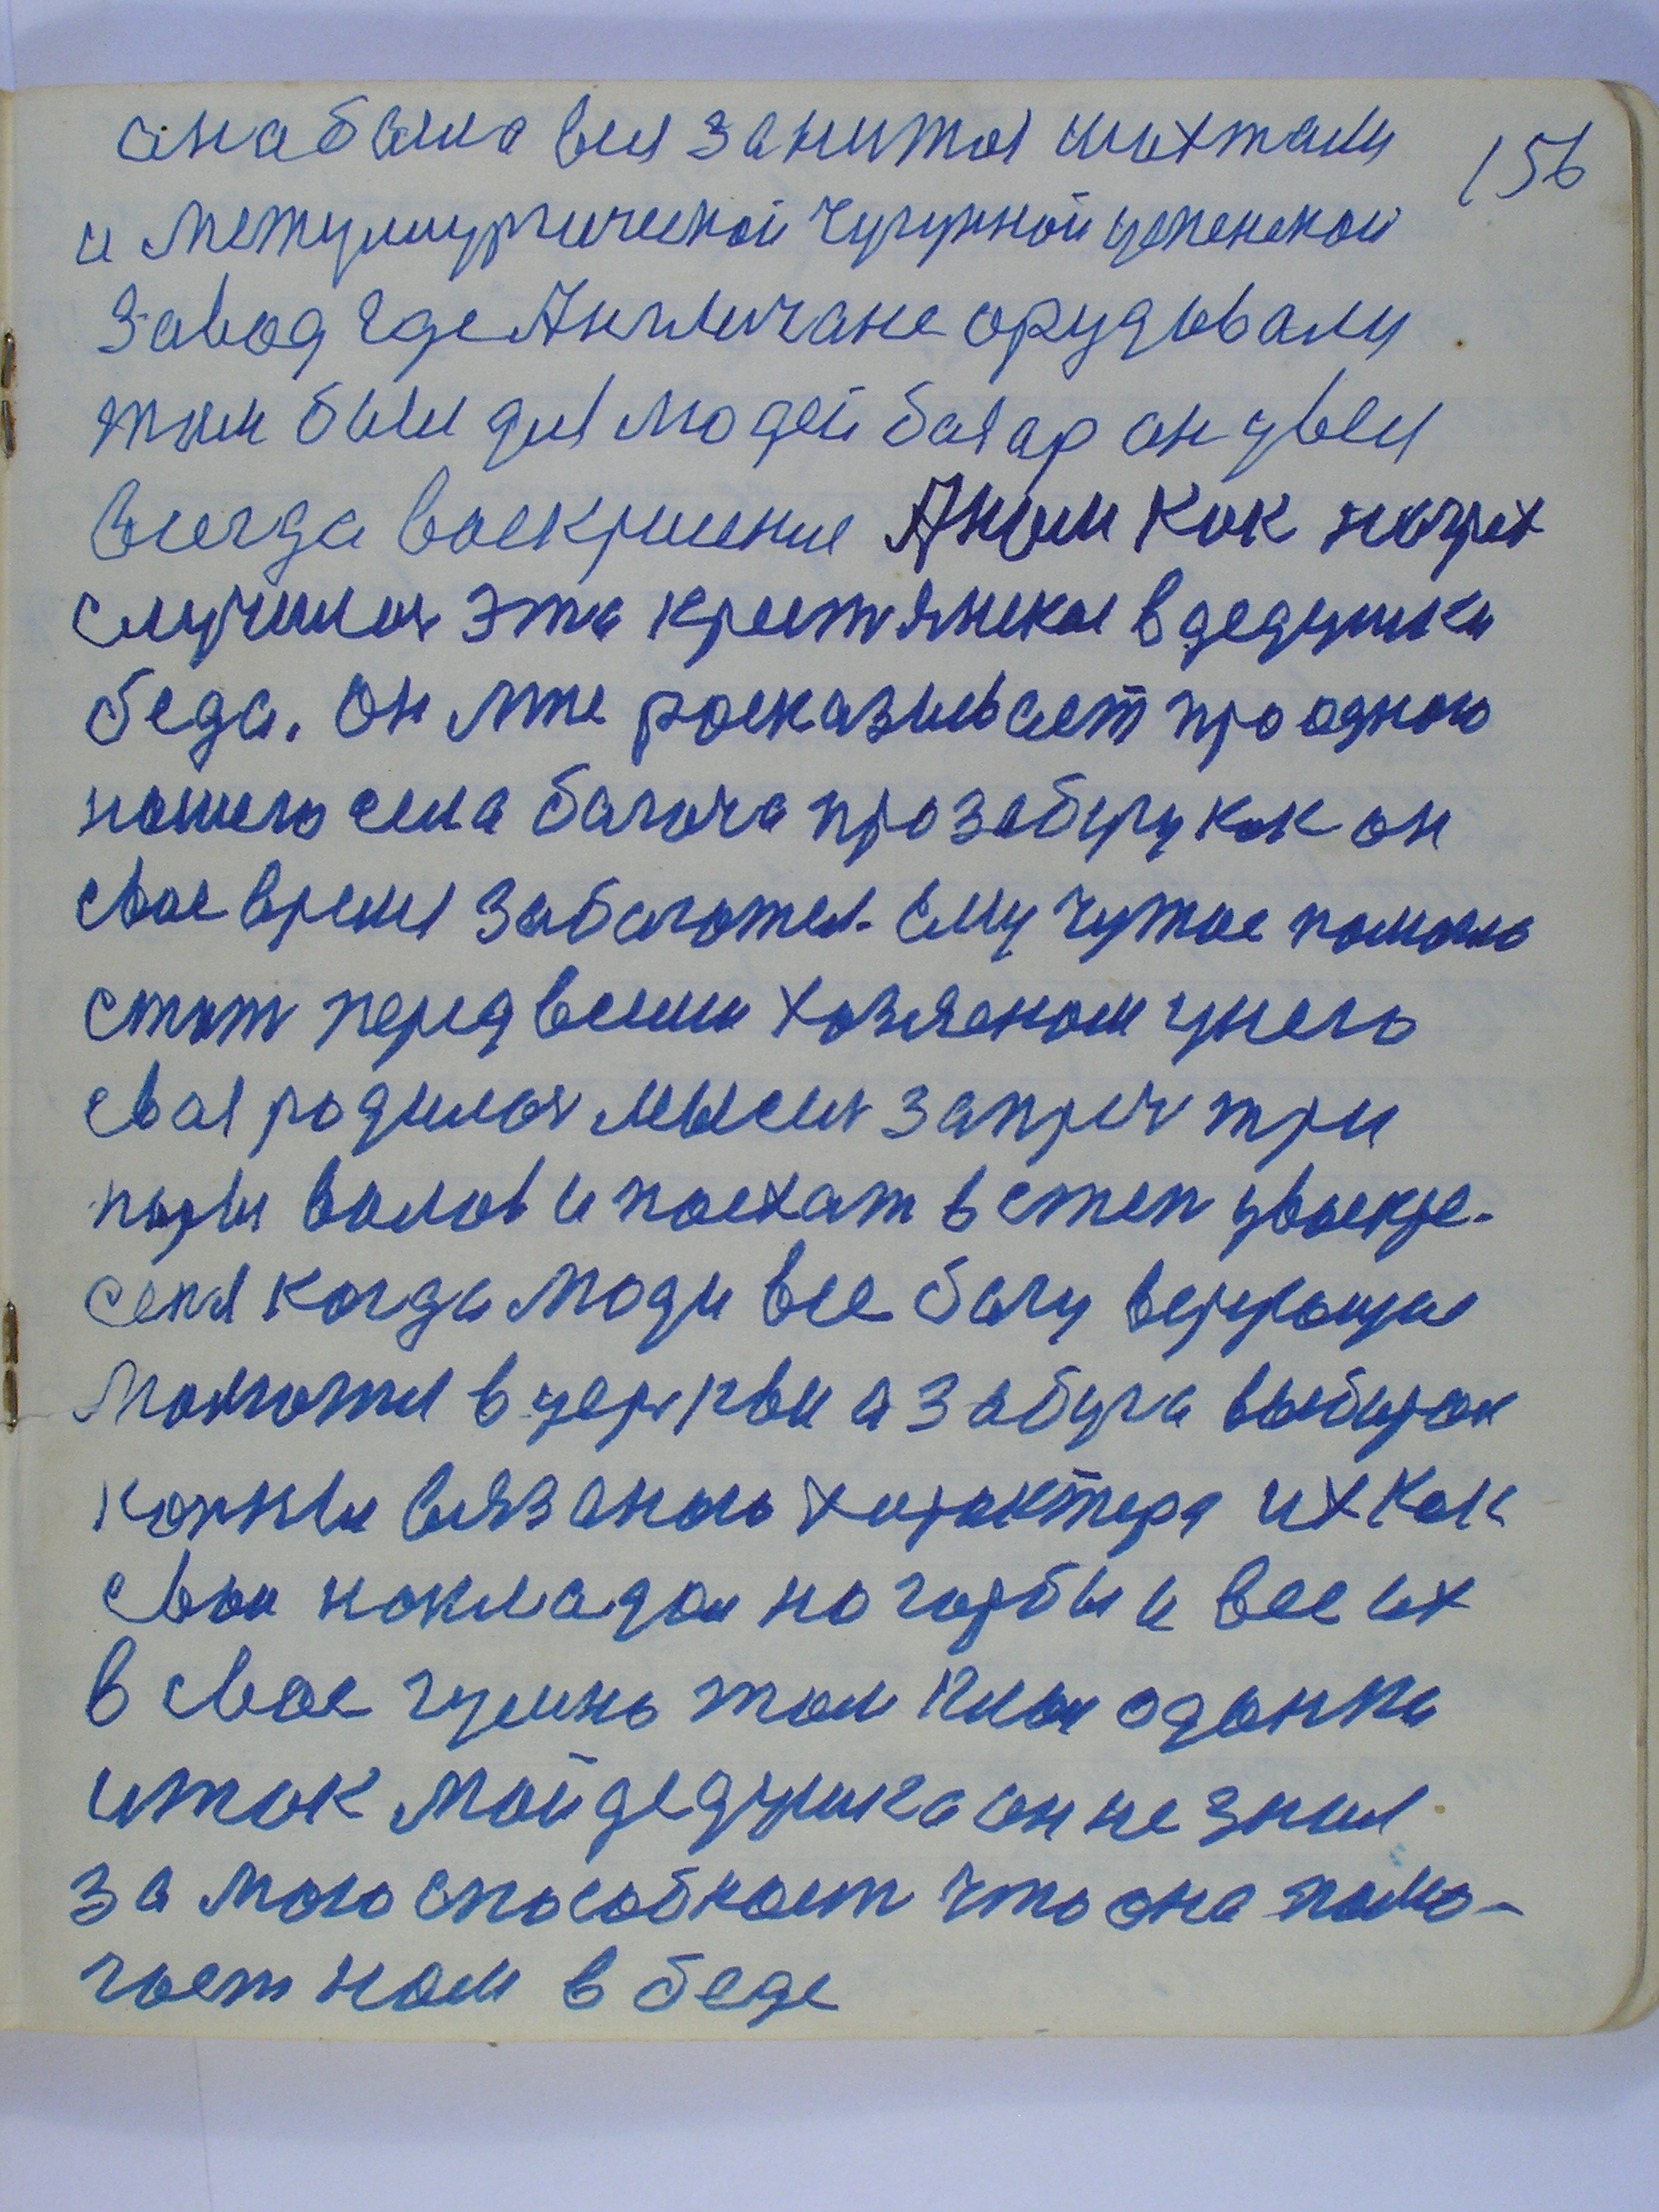 156
она была вся занитая шахтами
и металлургической чугунной успенской
завод где Англичане орудывали
там были для людей базар он увеся
всегда воскришение А нам как на грех
случилась эта крестянская в дедушки
беда. Он мне росказывает про одного
нашего села богача про забугу как он
свое время забоготел. ему чутое помогло
стат перед всеми хозяеном у него
своя родилась мысля заприч три
пары волов и поехат в степ увоскре-
сеня когда люди все богу верующие
молютися в церкви а забуга выбирал
копны вязаного характера их как
свои накладал на горбы и все их
в свое гумно там клал оденки
и так мой дедушка он не знал
за мою способност что она помо-
гает нам в беде